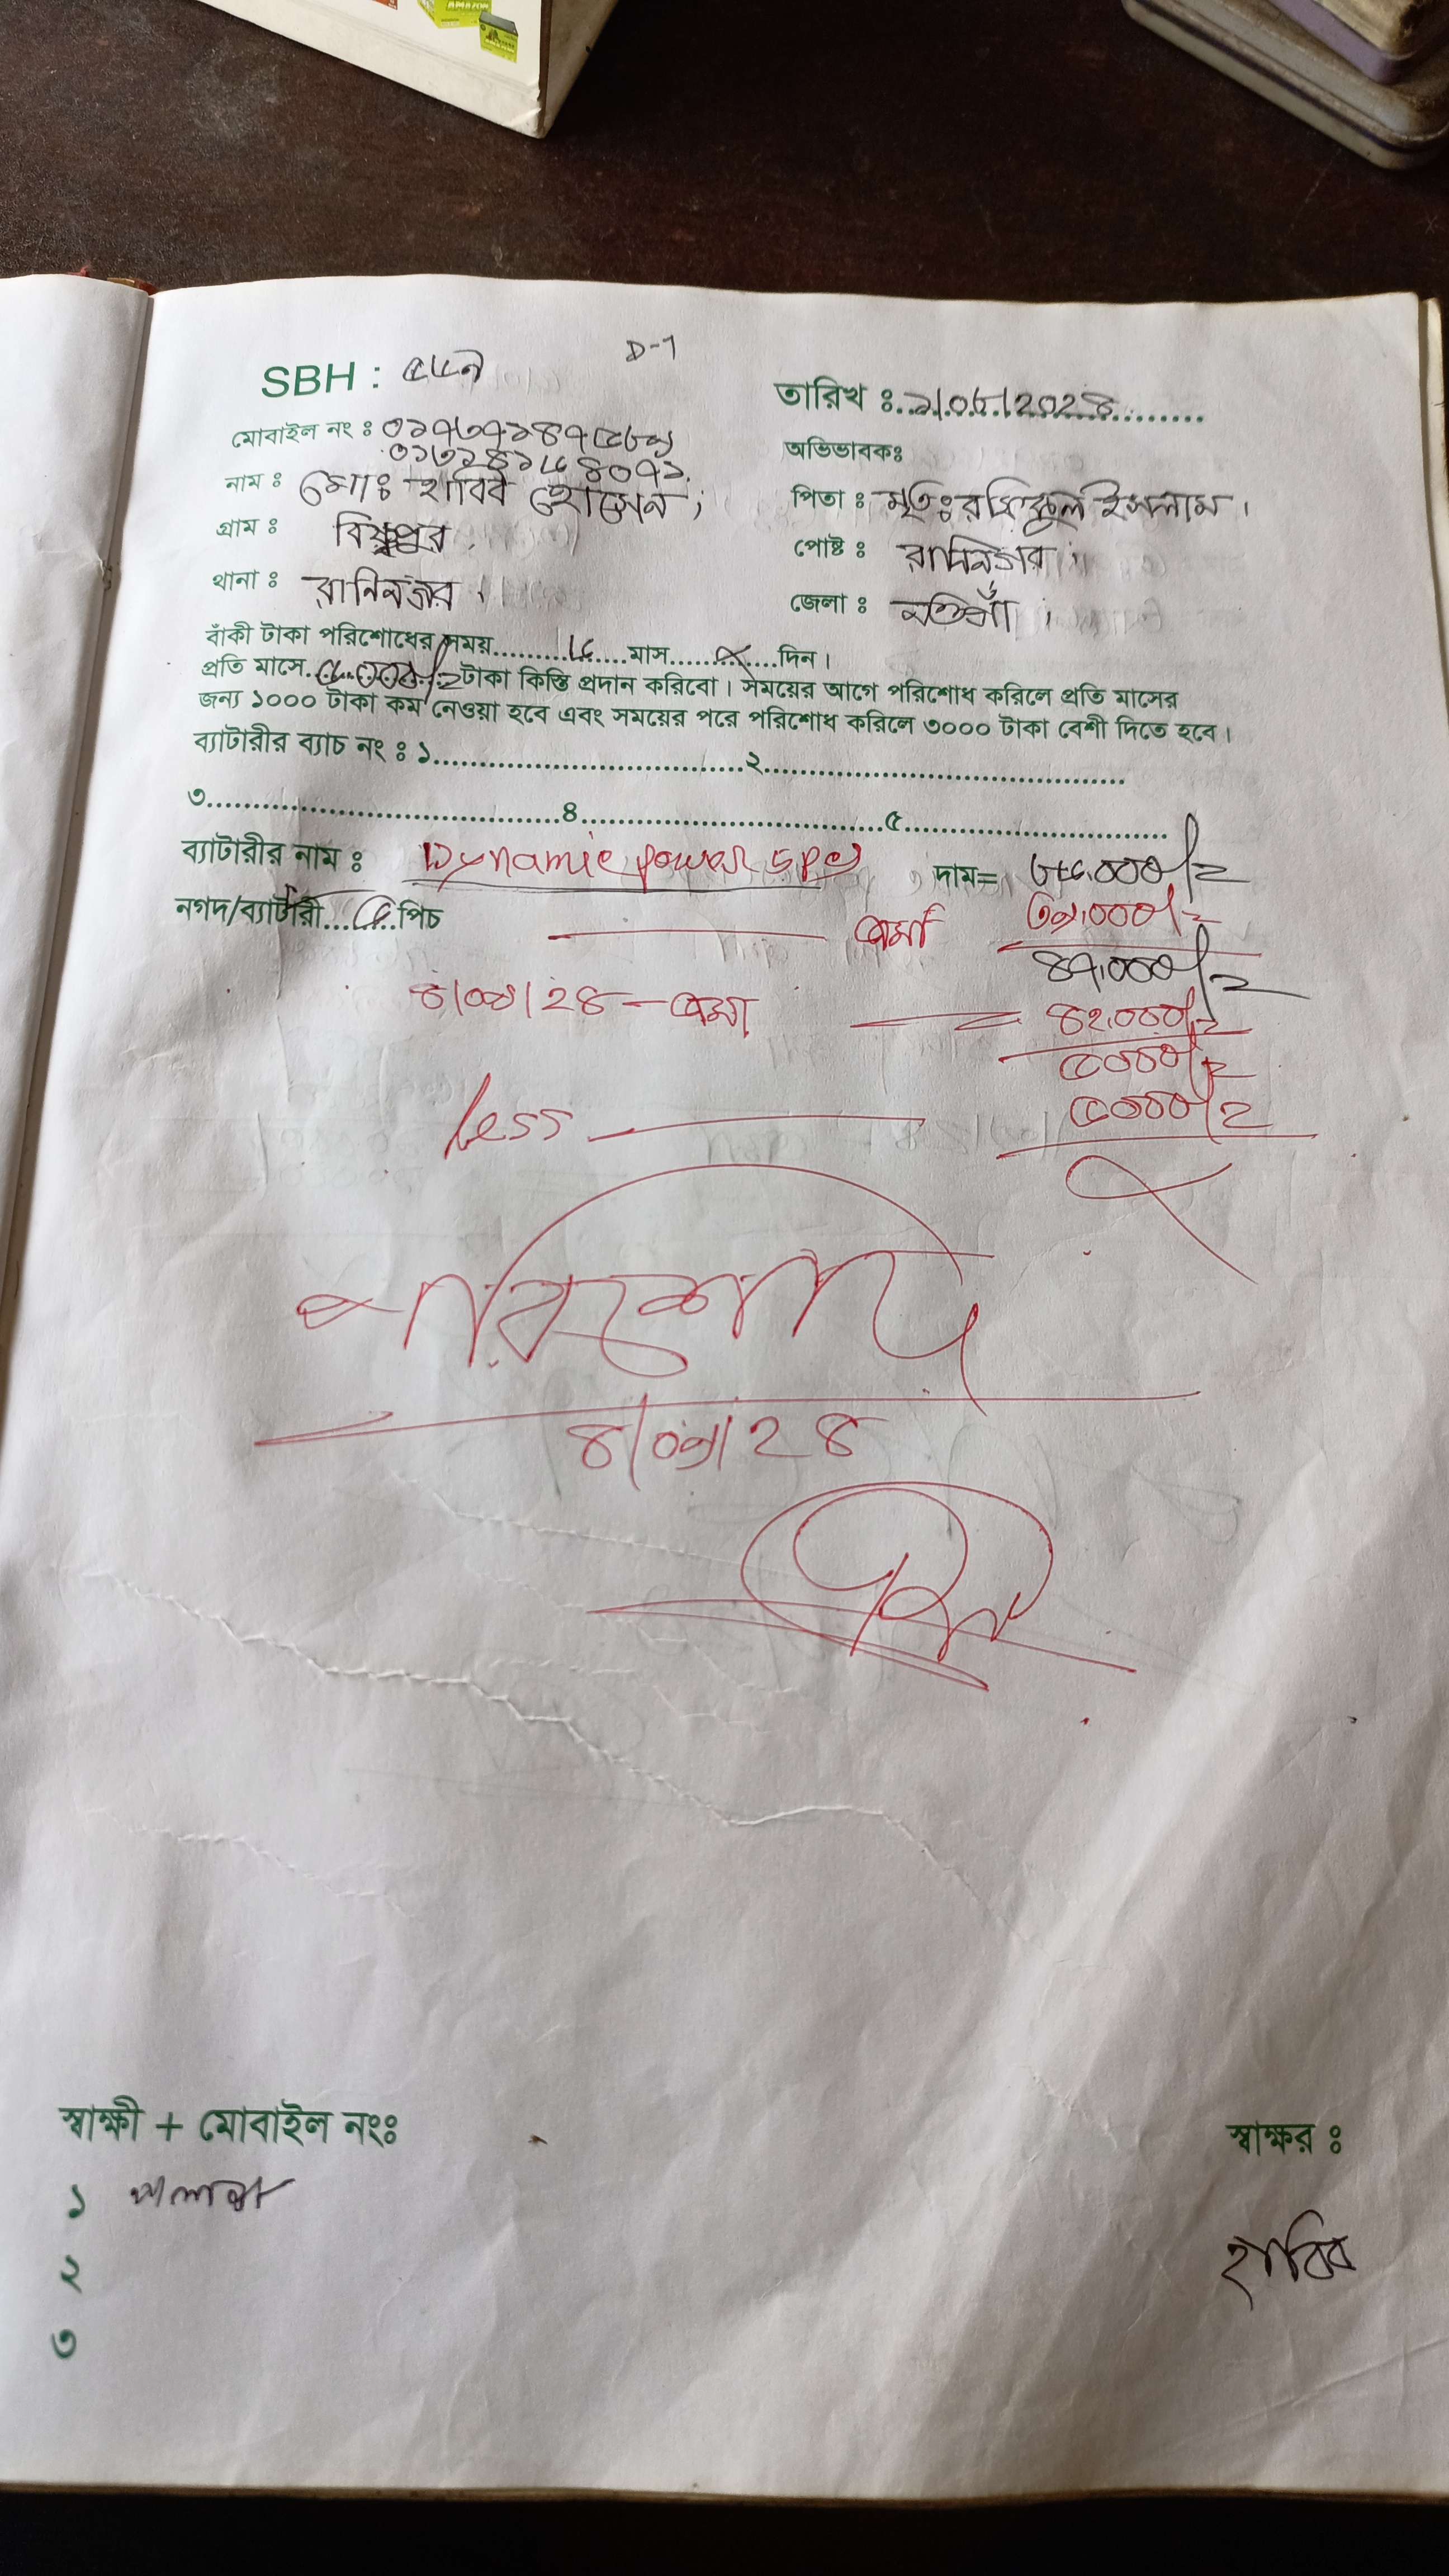 AMAZON
D-1
SBH :
তারিখ ঃ ১/০৬/২০২৪
মোবাইল নং ঃ
অভিভাবকঃ
নাম ঃ মোঃ হাবিব হোসেন,
পিতা ঃ মৃতঃ রফিকুল ইসলাম।
গ্রাম ঃ বিষ্ণুপুর
পোষ্ট ঃ রানিনগর।
থানা ঃ রানিনগর।
জেলা ঃ নওগাঁ।
বাঁকী টাকা পরিশোধের সময়..........৬....মাস.......×....দিন।
প্রতি মাসে টাকা কিস্তি প্রদান করিবো। সময়ের আগে পরিশোধ করিলে প্রতি মাসের
জন্য ১০০০ টাকা কম নেওয়া হবে এবং সময়ের পরে পরিশোধ করিলে ৩০০০ টাকা বেশী দিতে হবে।
ব্যাটারীর ব্যাচ নং ঃ ১..................................২.......................................
৩......................................৪..................................৫.............................
ব্যাটারীর নাম ঃ Dynamic power 5pc দাম= ৮৬,০০০/=
নগদ/ব্যাটারী...৫...পিচ
জমা ৩৯,০০০/=
৪৭,০০০/=
৪/০৯/২৪ - জমা = ৪২,০০০/=
৫০০০/=
less ৫০০০/=
×
পরিশোধ
৪/০৯/২৪
স্বাক্ষী + মোবাইল নংঃ
স্বাক্ষর ঃ
১
হাবিব
২
৩